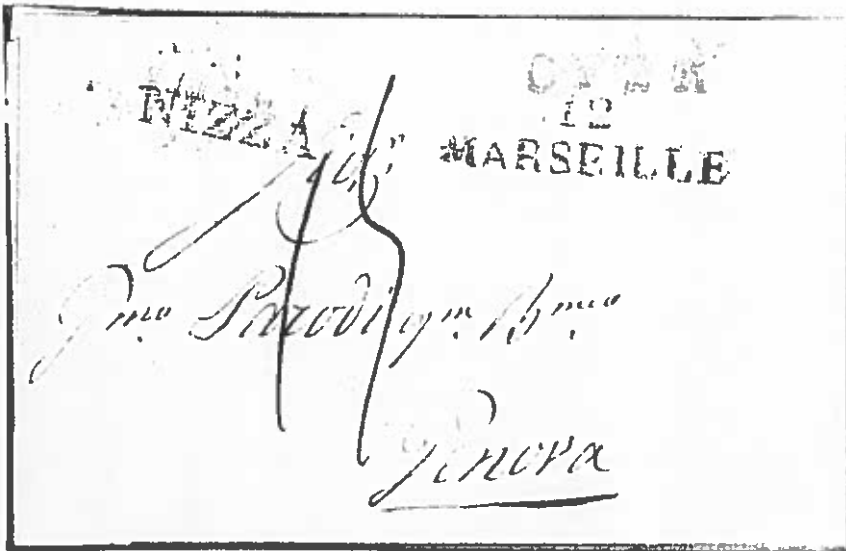 NIZZA
12
MARSEILLE
Sig.r
Parodi qm. B.meo
Genova